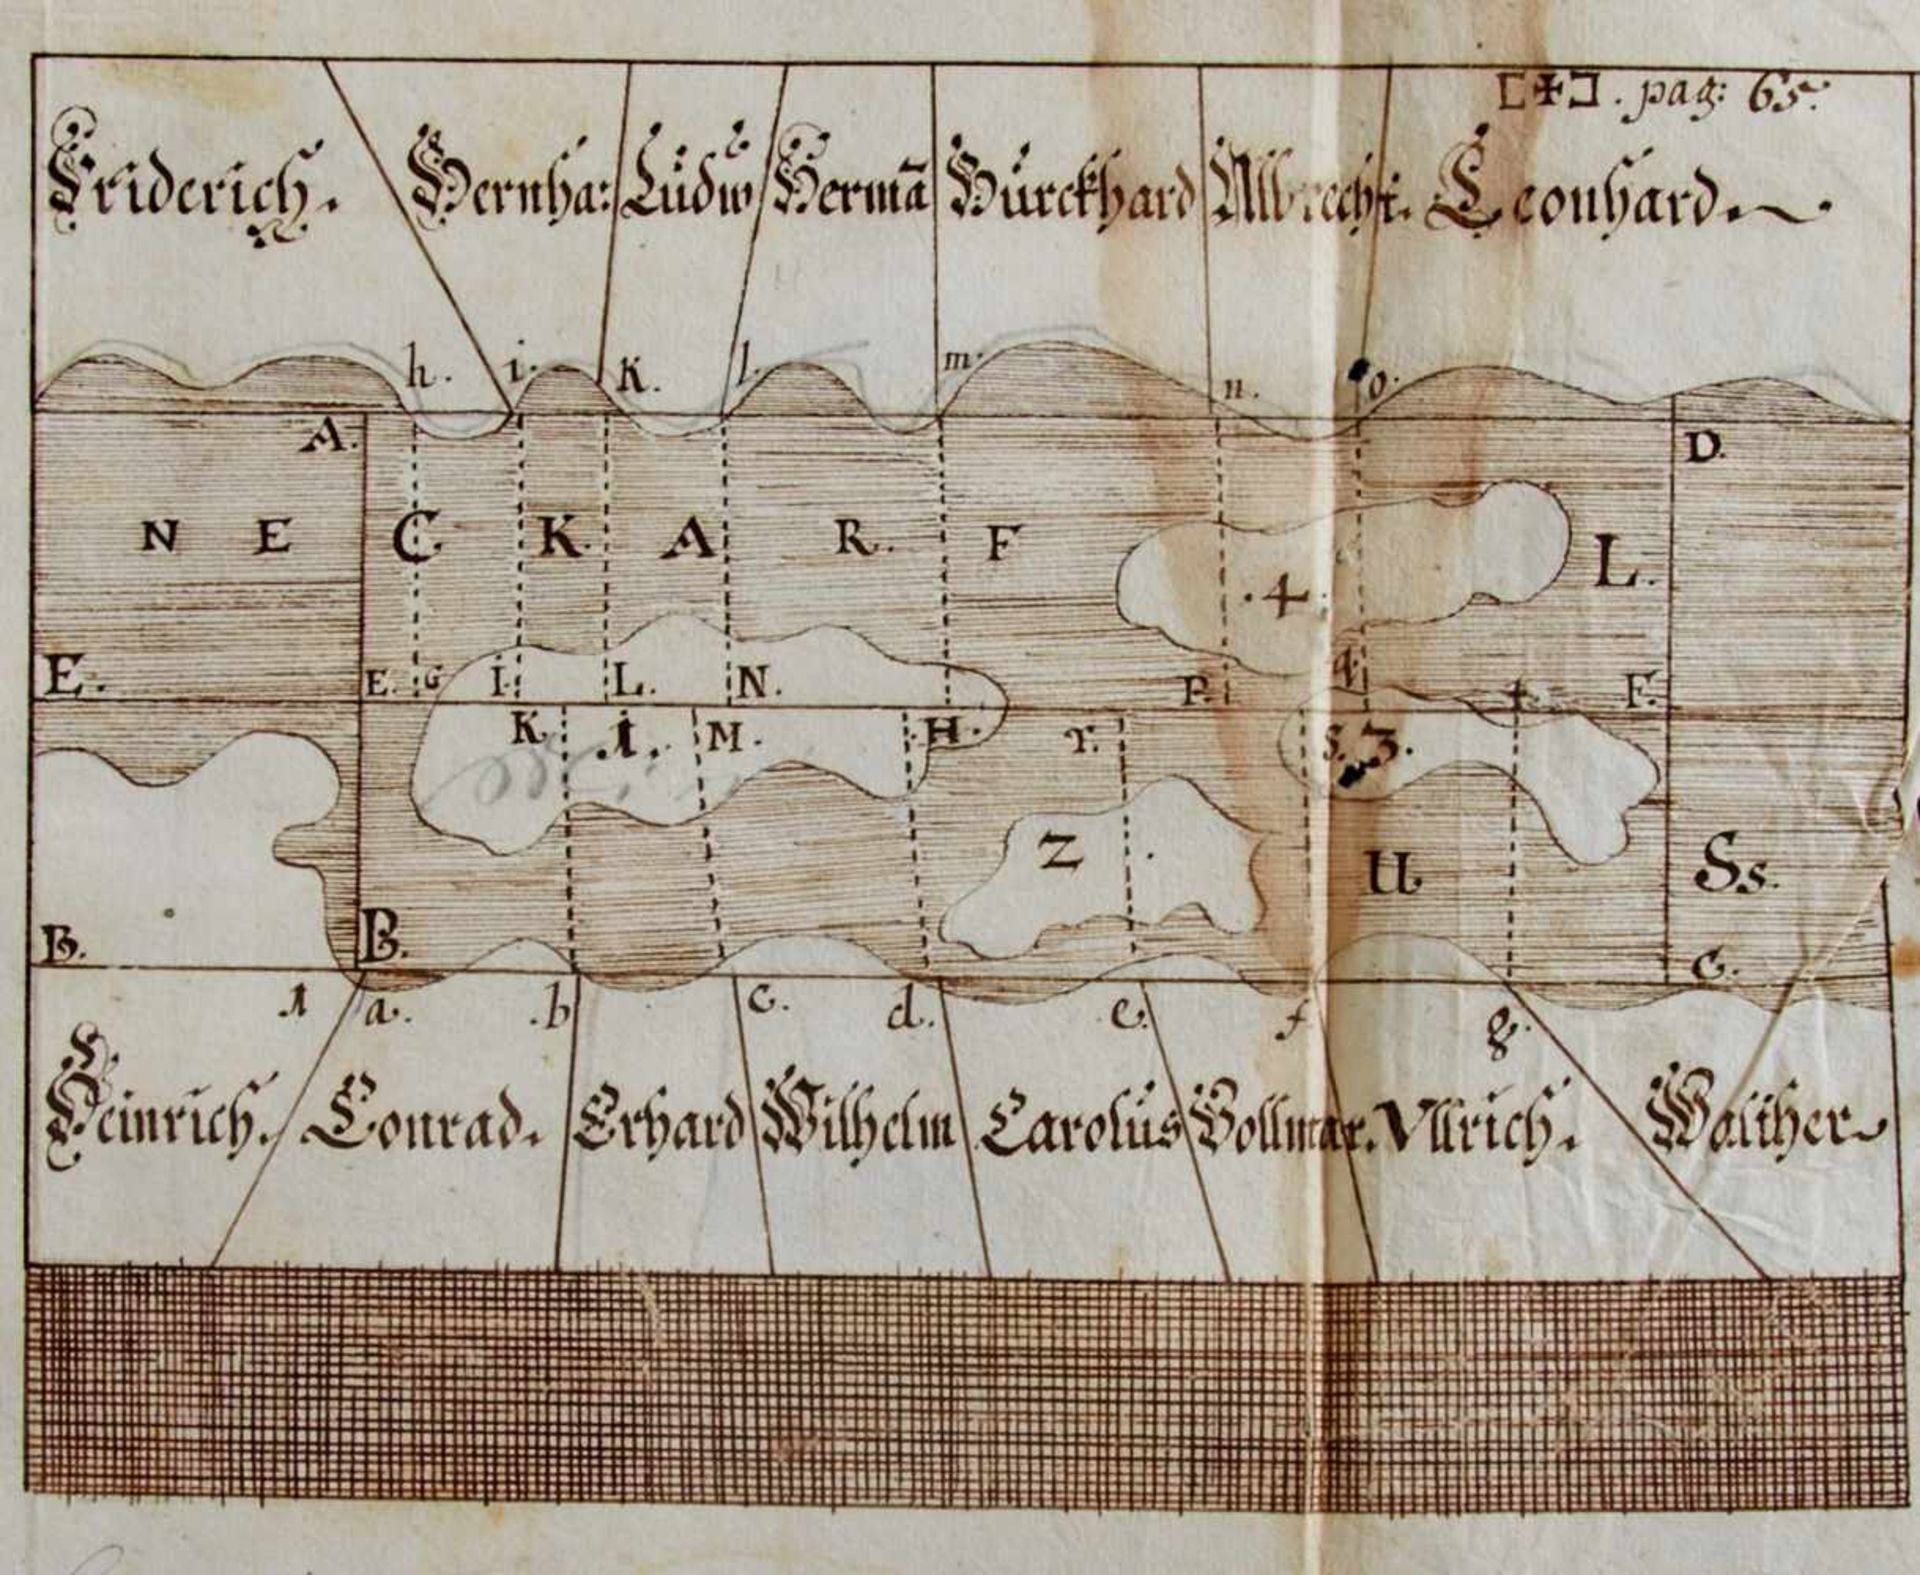 [✠]. pag: 65.
Friderich. Bernha: Ludw Hermā Burckhard Albrecht. Leonhard.
h. i. K. l. m. n. o.
A. D.
N E C K A R. F L. U Ss.
4
E. E. G I. L. N. P. q. t. F.
K. 1. M. H. r. s. 3.
2
B. B. C.
1 a. b c. d. e. f g.
Heinrich. Conrad. Erhard Wilhelm Carolus Vollmar. Vllrich. Walther